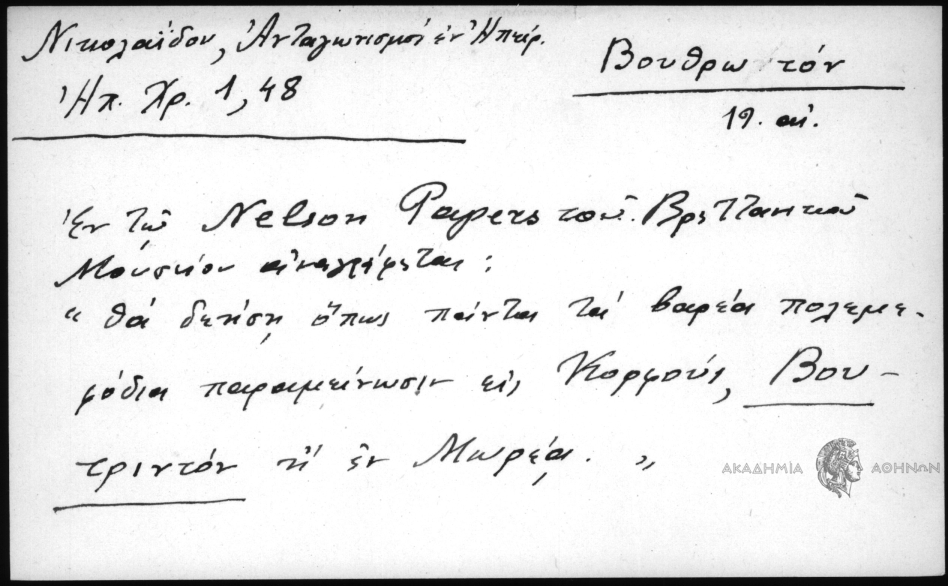 Νικολαΐδου, Ἀνταγωνισμοί ἐν Ἠπείρ.
Ἠπ. Χρ. 1, 48
Βουθρωτόν
19. αἰ.
Ἐν τῷ Nelson Papers τοῦ Βρεττανικοῦ
Μουσείου ἀναγράφεται:
"θά δεήση ὅπως πάντα τά βαρέα πολεμε-
φόδια παραμείνωσιν εἰς Κορφούς, Βου-
τριντόν ἤ ἐν Μωρέᾳ. "
ΑΚΑΔΗΜΙΑ ΑΘΗΝΩΝ